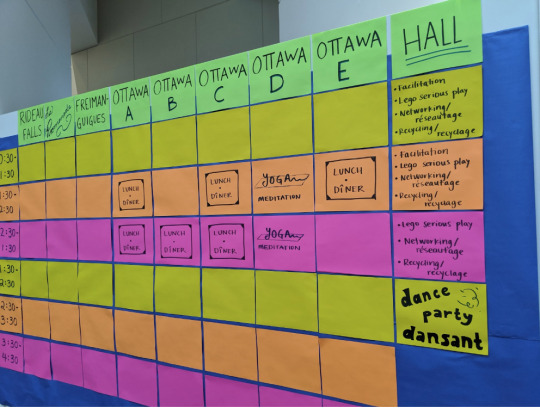 RIDEAU
FALLS
FREIMAN-
GUIGUES
OTTAWA
A
OTTAWA
B
OTTAWA
C
OTTAWA
D
OTTAWA
E
HALL
0:30-
1:30
• Facilitation
• Lego serious play
• Networking/
réseautage
• Recycling/
recyclage
1:30-
2:30
LUNCH
•
DÎNER
LUNCH
•
DÎNER
YOGA
MEDITATION
LUNCH
•
DÎNER
• Facilitation
• Lego serious play
• Networking/
réseautage
• Recycling/
recyclage
2:30-
1:30
LUNCH
•
DÎNER
LUNCH
•
DÎNER
LUNCH
•
DÎNER
YOGA
MEDITATION
• Lego serious play
• Networking/
réseautage
• Recycling/
recyclage
1:30-
2:30
dance
party
dansant
2:30-
3:30
3:30-
4:30